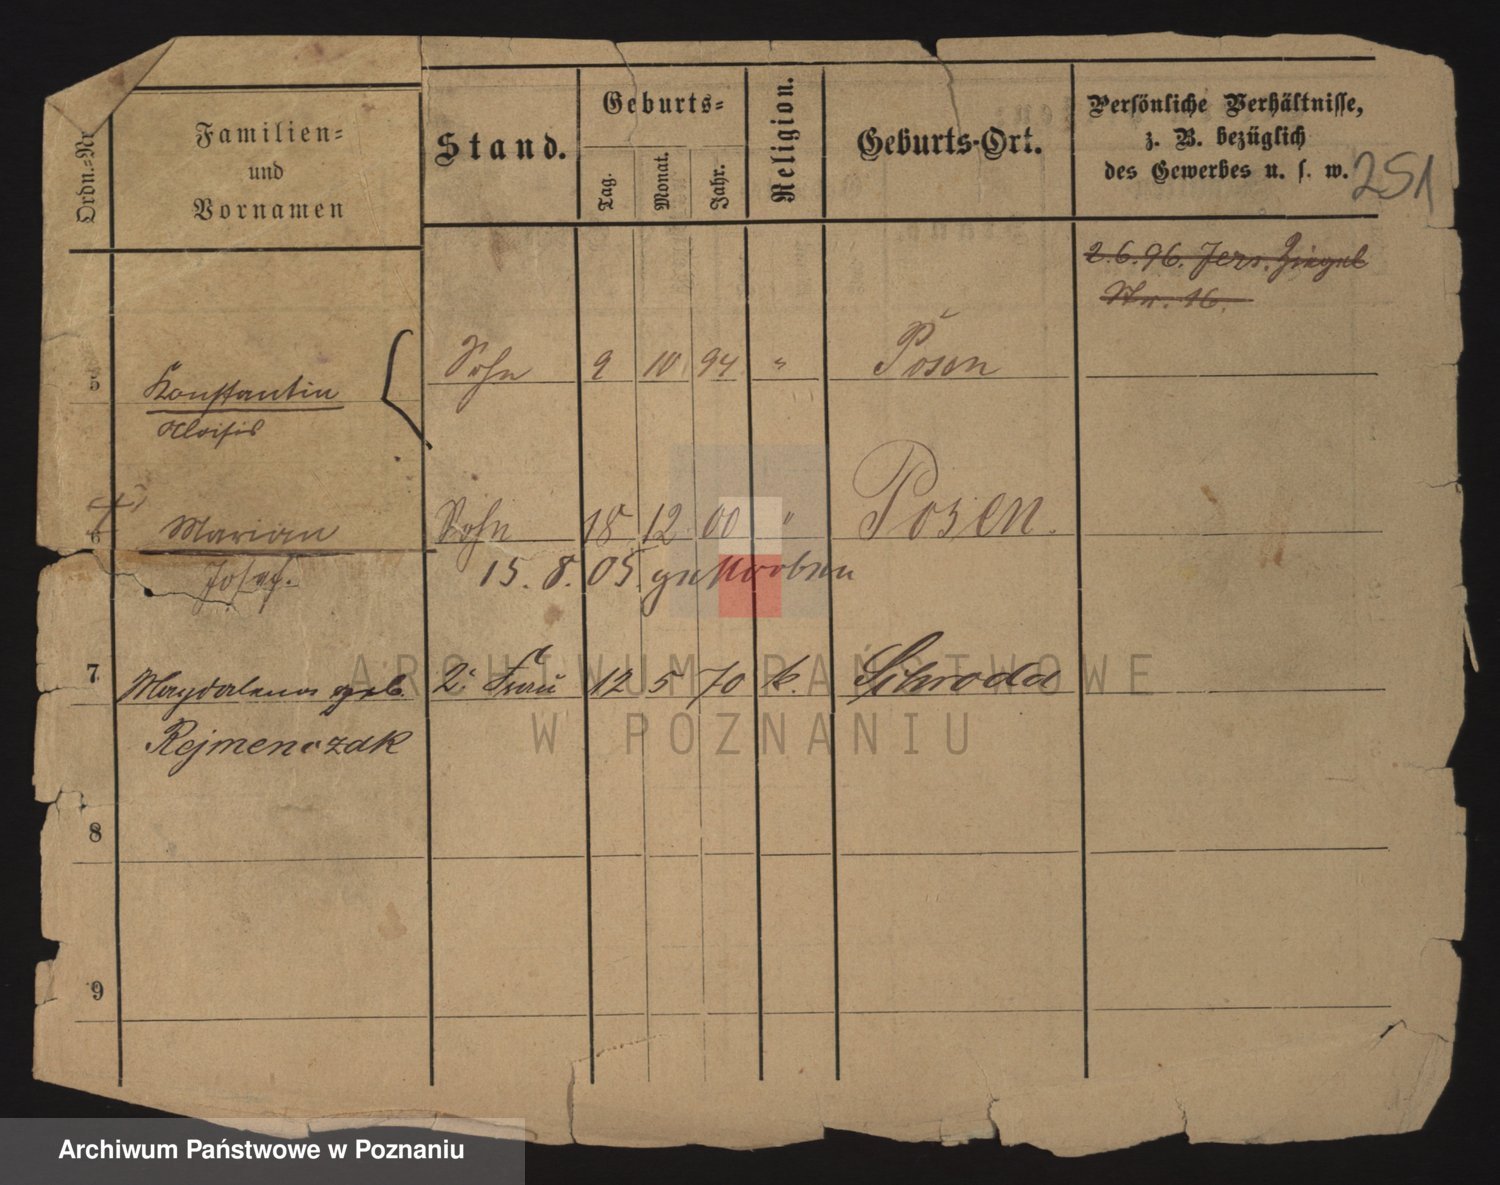 Ordn.-Nr
Familien-
und
Vornamen
Stand.
Geburts-
Tag.
Monat.
Jahr.
Religion.
Geburts-Ort.
Persönliche Verhältnisse,
z. B. bezüglich
des Gewerbes u. s. w.
251
2.6.96. Jers.
Nr. 16.
5 Konstantin Sohn 9 10 94 " Posen
6 Marian Sohn 18 12 00 " Posen.
Josef. 15. 8. 05 gestorben
7 Magdalena geb. 2. Frau 12 5 70 k. Schroda
Rejmenczak
8
9
ARCHIWUM PAŃSTWOWE
W POZNANIU
Archiwum Państwowe w Poznaniu